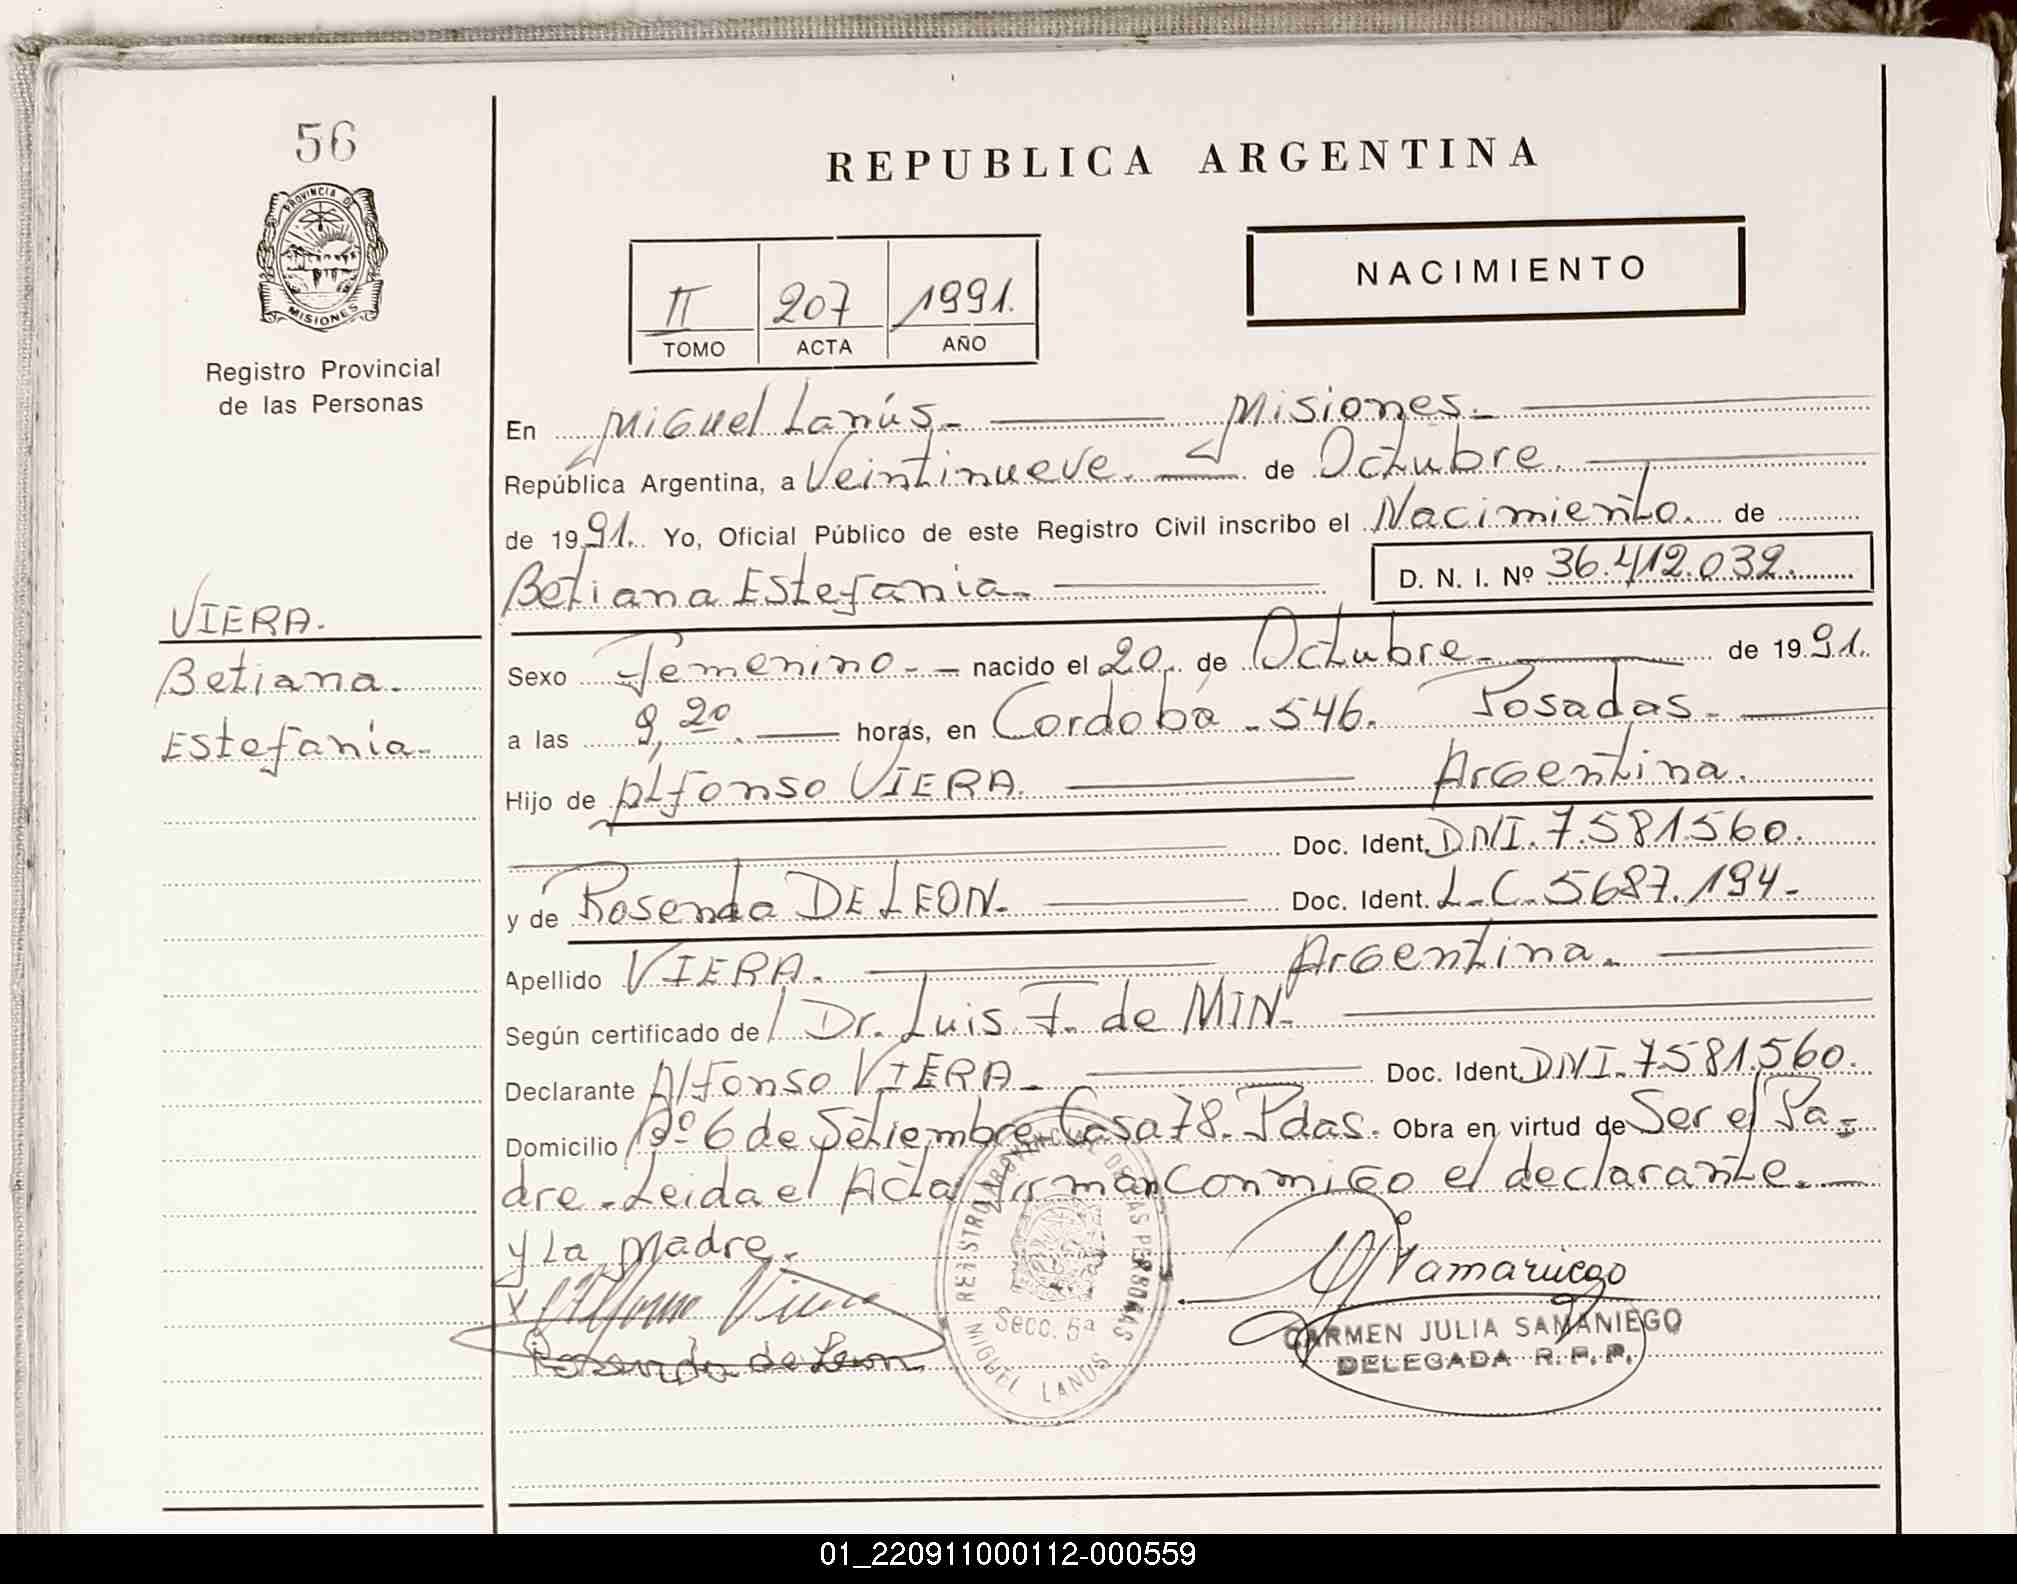 56
PROVINCIA DE
MISIONES
Registro Provincial
de las Personas
VIERA.
Betiana.
Estefanía.
REPUBLICA ARGENTINA
NACIMIENTO
II 207 1991.
TOMO ACTA AÑO
En Miguel Lanús. Misiones.
República Argentina, a Veintinueve. de Octubre.
de 1991. Yo, Oficial Público de este Registro Civil inscribo el Nacimiento. de
Betiana Estefania. D. N. I. Nº 36.412.032.
Sexo Femenino. nacido el 20. de Octubre. de 1991.
a las 9,20. horas, en Cordoba. 546. Posadas.
Hijo de Alfonso VIERA. Argentina.
Doc. Ident. DNI. 7.581.560.
y de Rosenda DE LEON. Doc. Ident. L.C. 5687.194.
Apellido VIERA. Argentina.
Según certificado de Dr. Luis F. de MIN.
Declarante Alfonso VIERA. Doc. Ident. DNI. 7581.560.
Domicilio Bº 6 de Setiembre Casa 78. Pdas. Obra en virtud de Ser el Pa=
dre. Leida el Acta firman conmigo el declarante.
y La Madre.
x Alfonso Viera
Rosenda de Leon
REGISTRO PROVINCIAL DE LAS PERSONAS
Secc. 5ª
MIGUEL LANUS
CJSamaniego
CARMEN JULIA SAMANIEGO
DELEGADA R.P.P.
01_220911000112-000559